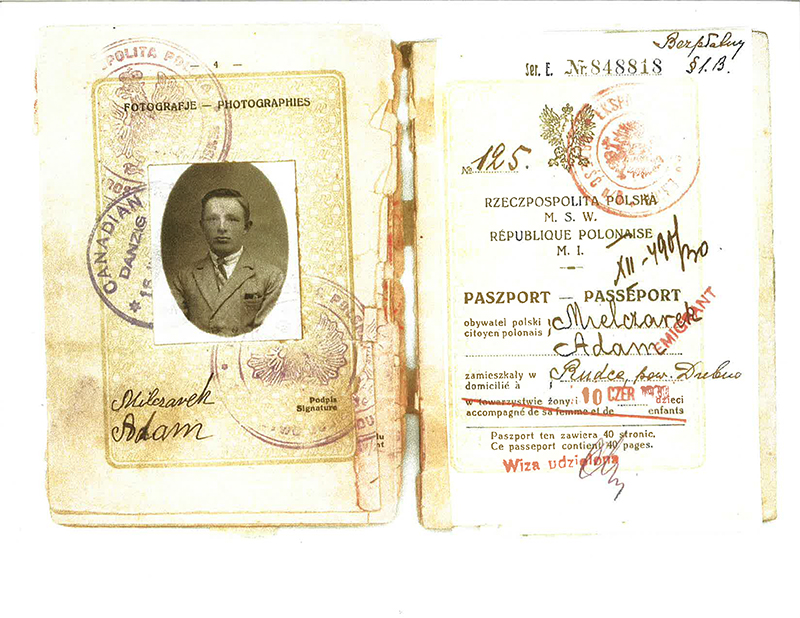 — 4 —
FOTOGRAFJE — PHOTOGRAPHIES
CANADIAN
DANZIG
Milczarek
Adam
Podpis
Signature
Bezpłatny
§1.B.
Ser. E. Nr. 848818
№ 125.
RZECZPOSPOLITA POLSKA
M. S. W.
RÉPUBLIQUE POLONAISE
M. I.
PASZPORT — PASSEPORT
obywatel polski
citoyen polonais
Mielczarek
Adam
EMIGRANT
zamieszkały w
domicilié à
w towarzystwie żony
dzieci
10 CZER
accompagné de sa femme et de enfants
Paszport ten zawiera 40 stronic.
Ce passeport contient 40 pages.
Wiza udzielona